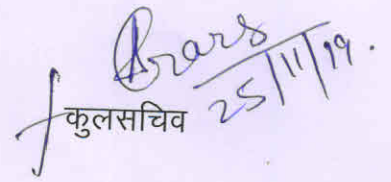 25/11/19.
कुलसचिव